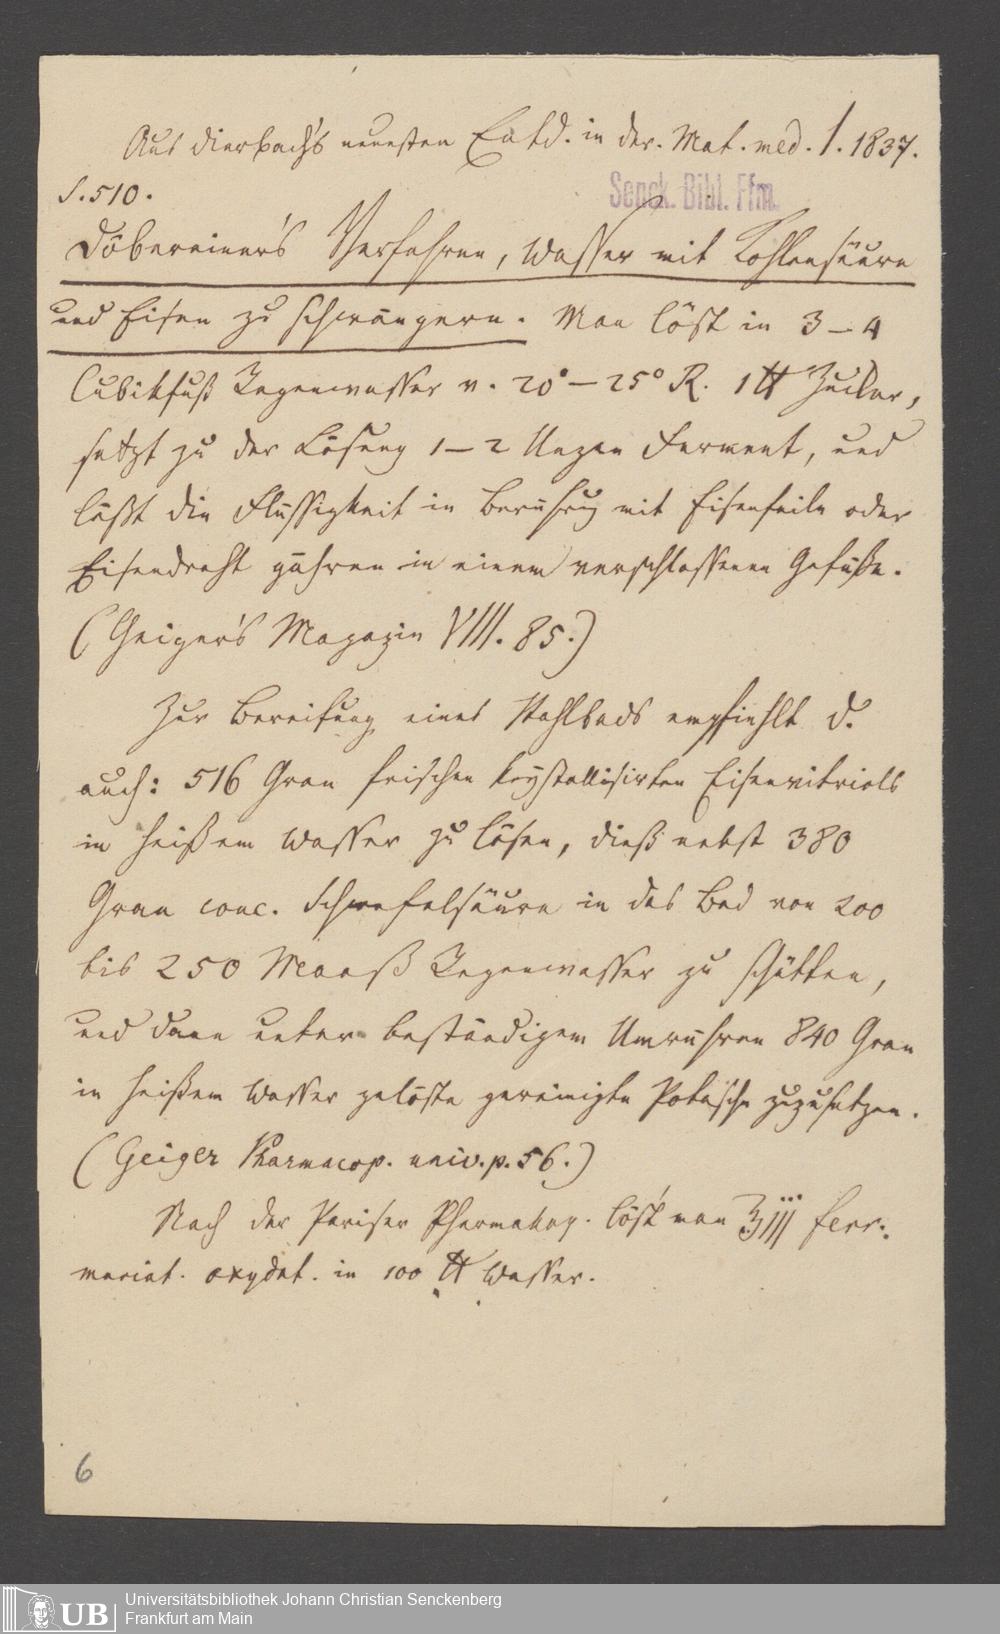 Aus Dierbach's neuesten Entd. in der. Mat. med. 1. 1837.
S. 510.
Senck. Bibl. Ffm.
Döbereiner's Verfahren, Wasser mit Kohlensäure
und Eisen zu schwängern. Man löst in 3–4
Cubikfuß Regenwasser v. 20°–25° R. 1 ℔ Zucker,
setzt zu der Lösung 1–2 Unzen Ferment, und
läßt die Flüssigkeit in Berührg mit Eisenfeile oder
Eisendraht gähren in einem verschlossenen Gefäße.
(Geiger's Magazin VIII. 85.)
Zur Bereitung eines Stahlbads empfiehlt D.
auch: 516 Gran frischen krystallisirten Eisenvitriols
in heißem Wasser zu lösen, dieß nebst 380
Gran conc. Schwefelsäure in das Bad von 200
bis 250 Maaß Regenwasser zu schütten,
und dann unter beständigem Umrühren 840 Gran
in heißem Wasser gelöste gereinigte Potasche zuzusetzen.
(Geiger Pharmacop. univ. p. 56.)
Nach der Pariser Pharmakop. löst man ℥iii ferr.
muriat. oxydat. in 100 ℔ Wasser.
6
UB
Universitätsbibliothek Johann Christian Senckenberg
Frankfurt am Main